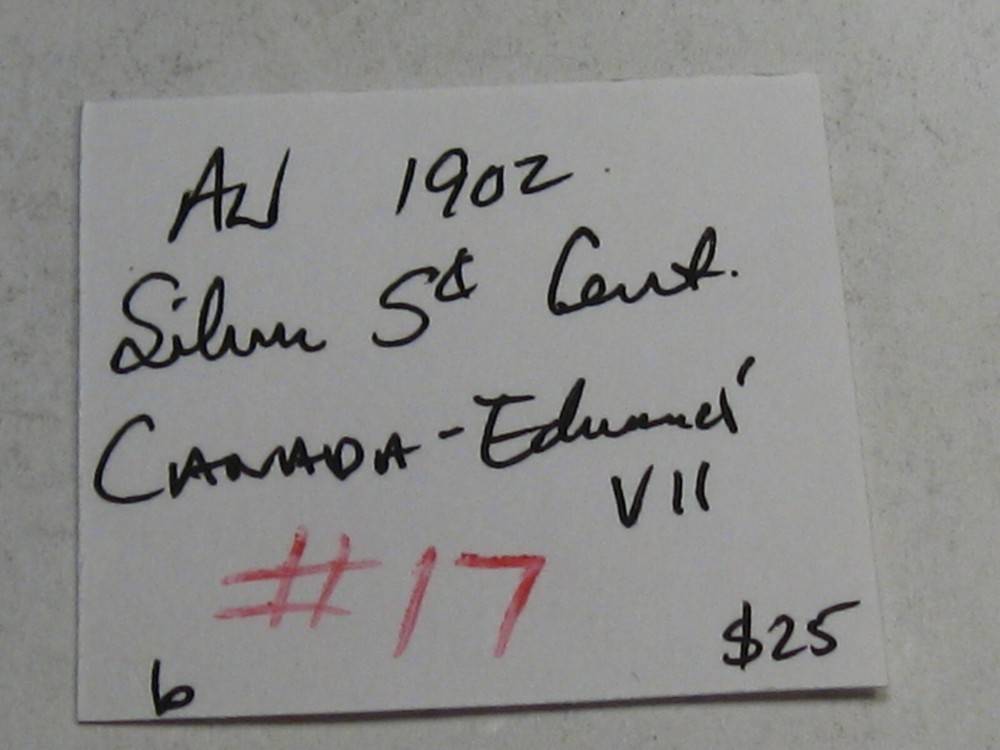 AU 1902
Silver 5¢ Cent.
CANADA - Edward
VII
#17
$25
b